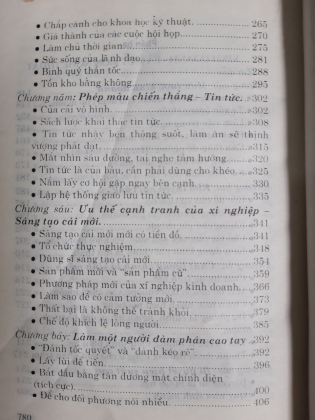 • Chắp cánh cho khoa học kỹ thuật. 265
• Giá thành của các cuộc hội họp. 270
• Làm chủ thời gian. 275
• Sức sống của lãnh đạo. 281
• Binh quý thần tốc. 288
• Tồn kho bằng không. 295
Chương năm: Phép màu chiến thắng – Tin tức. 302
• Của cải vô hình. 302
• Sách lược khai thác tin tức. 308
• Tin tức nhạy bén thông suốt, làm ăn sẽ thịnh
vượng phát đạt. 315
• Mắt nhìn sáu đường, tai nghe tám hướng. 320
• Tin tức là của báu, cần phải dùng cho khéo. 325
• Nắm lấy cơ hội gặp ngay bên cạnh. 330
• Lập hệ thống giao lưu tin tức. 335
Chương sáu: Ưu thế cạnh tranh của xí nghiệp –
Sáng tạo cái mới. 341
• Sáng tạo cái mới mới có tiền đồ. 341
• Tổ chức thực nghiệm. 348
• Dũng sĩ sáng tạo cái mới. 354
• Sản phẩm mới và "sản phẩm cũ". 359
• Phương pháp mới của xí nghiệp kinh doanh. 366
• Làm sao để có cảm tưởng mới. 373
• Thất bại là không thể tránh khỏi. 379
• Chế độ khích lệ lòng người. 385
Chương bảy: Làm một người đàm phán cao tay. 392
• "Đánh tốc quyết" và "đánh kéo rê". 392
• Lấy lùi để tiến. 396
• Bắt đầu bằng tán dương mặt chính diện
(tích cực). 400
• Để cho đối phương nói nhiều. 406
780